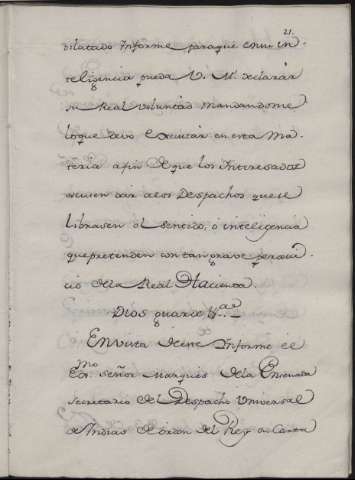 21.
dilatado Informe paraque en su in-
teligencia pueda V. M. declarar
su Real voluntad mandandome
loque devo executar en esta ma-
teria afin de que los Interesados
escusen dar alos Despachos quese
librasen el sentido, ò inteligencia
que pretenden con tan grave perjui-
cio dela Real Hacienda.
Dios guarde &.ª
En vista de este Informe el
Ex.mo señor Marques dela Ensenada
secretario del Despacho Universal
de Indias de orden del Rey en Carta